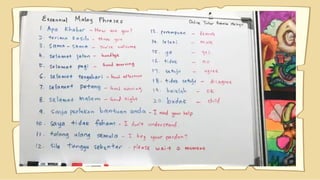 Essential Malay Phrases
Online Tutor Bahasa Melayu
1. Apa khabar - How are you?
2. terima kasih - thank you
3. sama-sama - you're welcome
4. selamat jalan - goodbye
5. selamat pagi - good morning
6. selamat tengahari - good afternoon
7. selamat petang - good evening
8. selamat malam - good night
9. saya perlukan bantuan anda - I need your help
10. saya tidak faham - I don't understand
11. tolong ulang semula - I beg your pardon?
12. sila tunggu sebentar - please wait a moment
13. perempuan - female
14. lelaki - male
15. ya - yes
16. tidak - no
17. setuju - agree
18. tidak setuju - disagree
19. baiklah - OK
20. budak - child